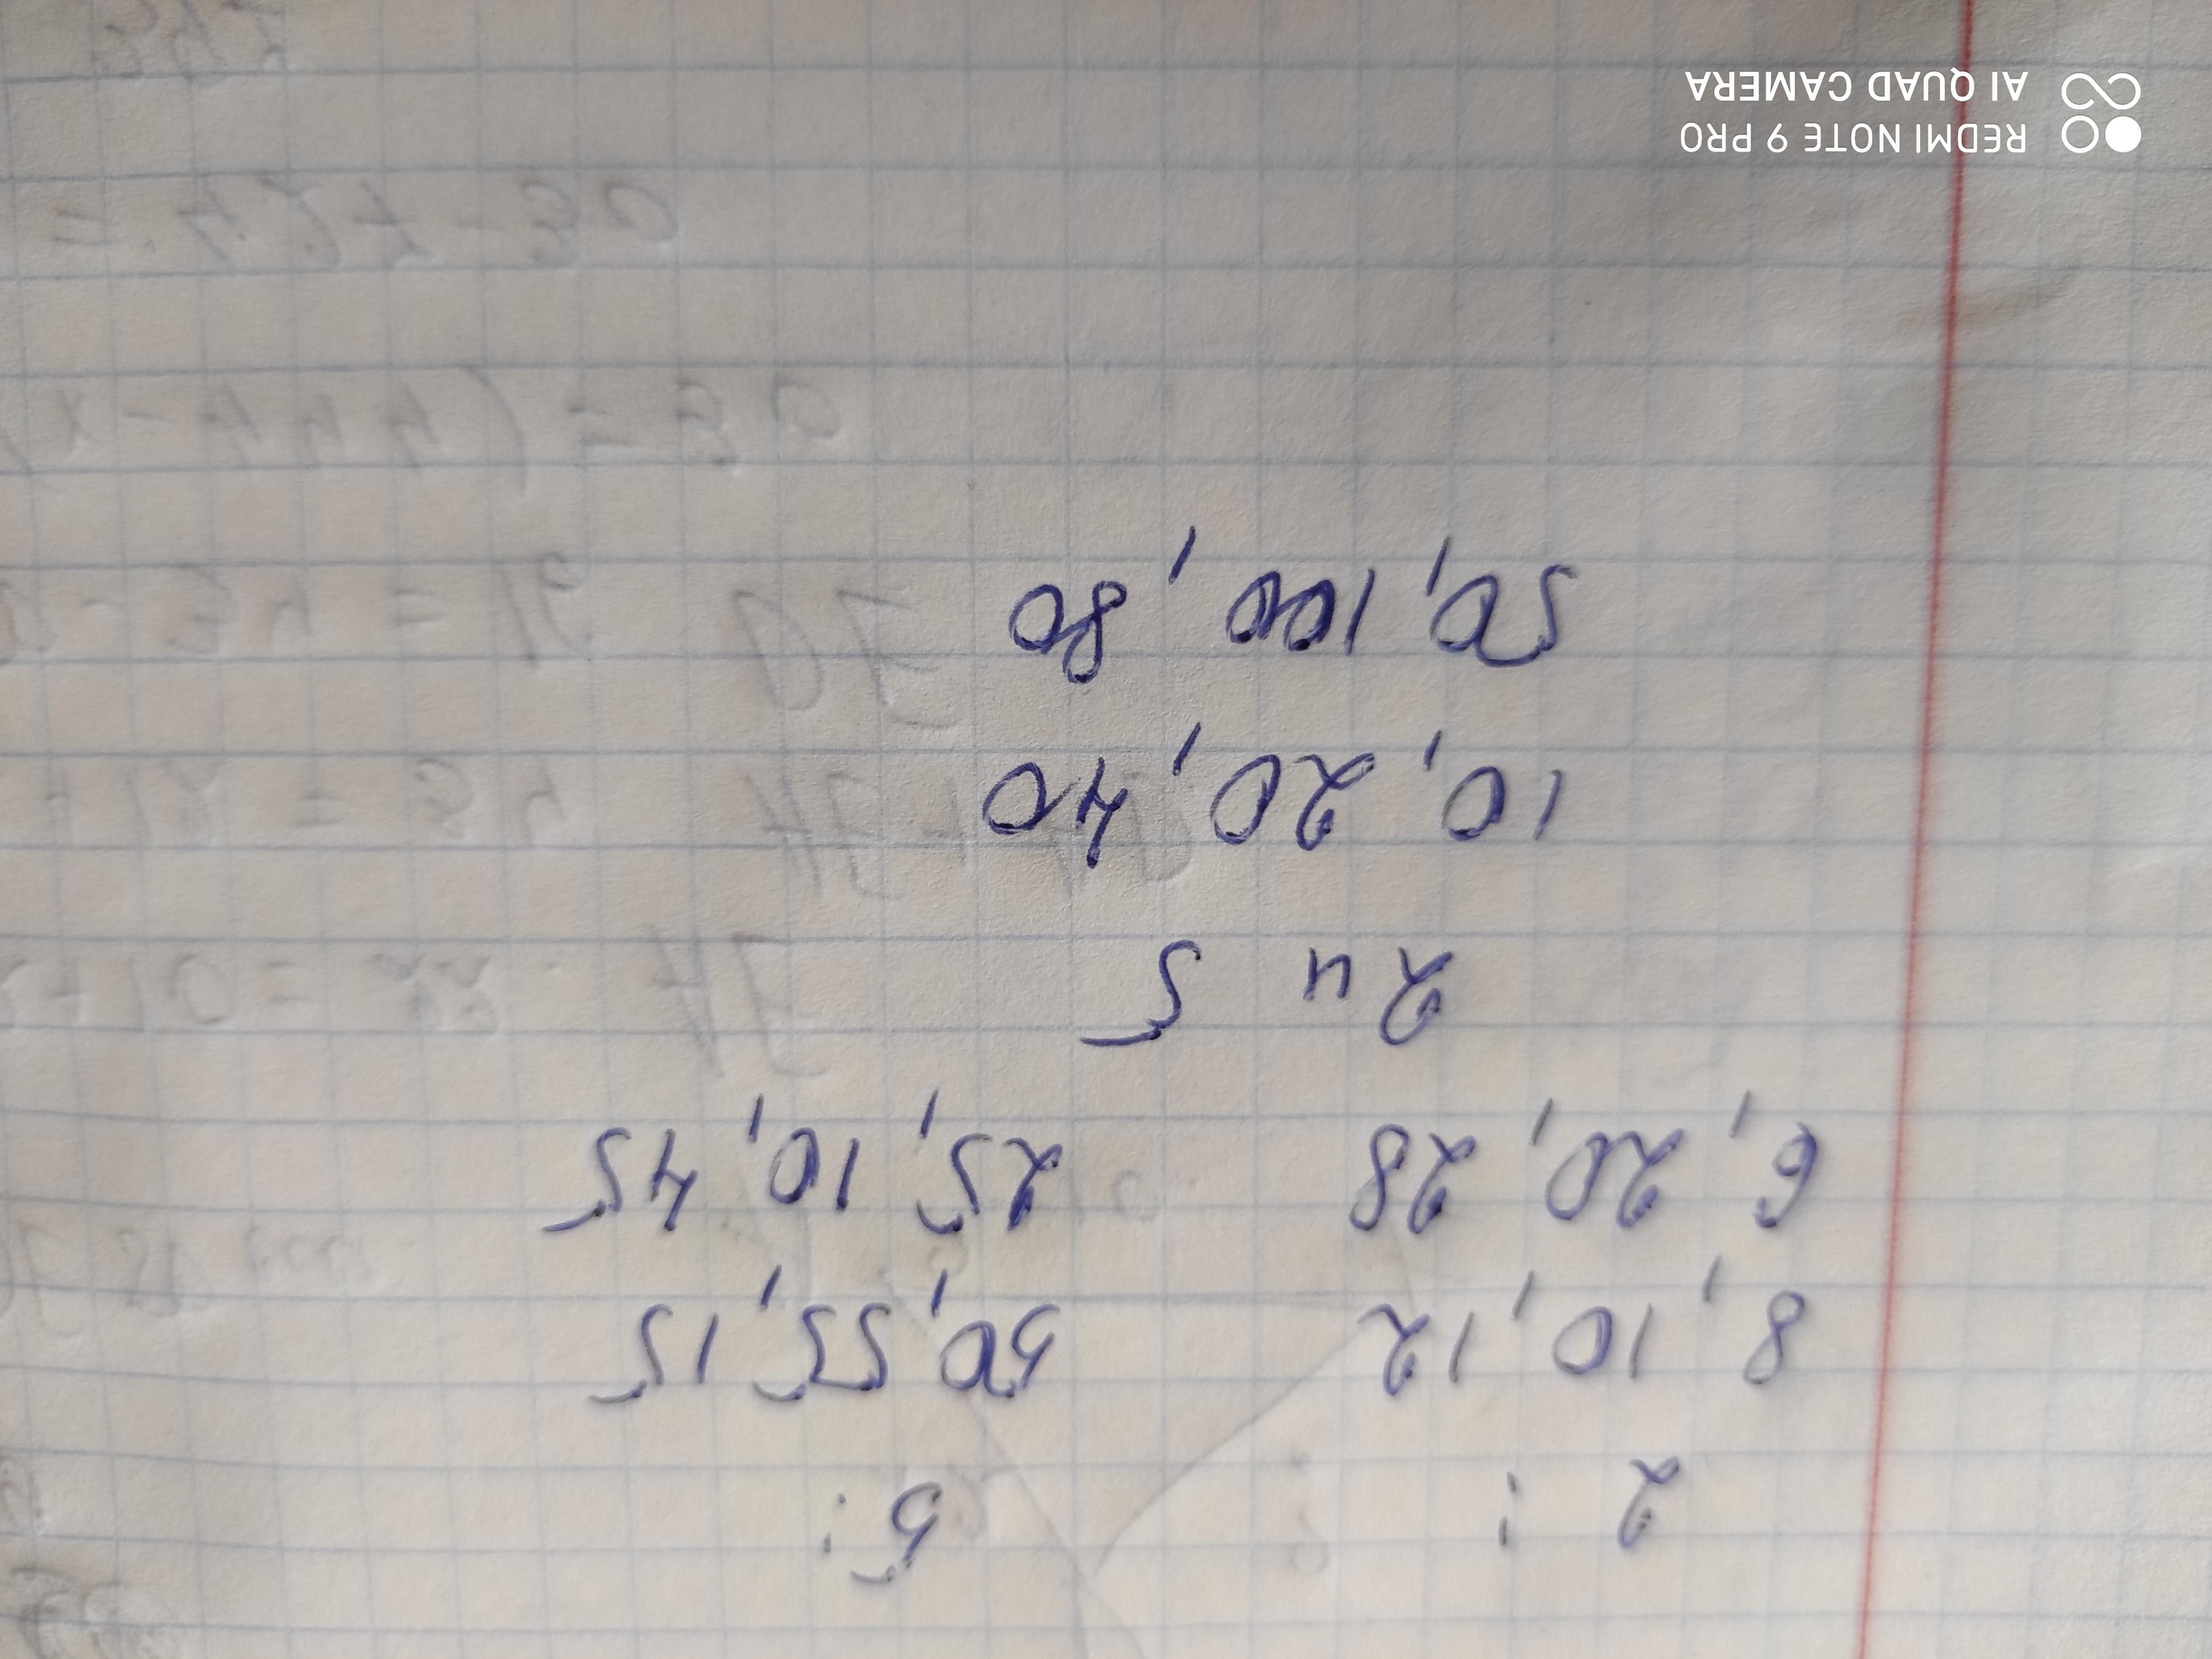 2 : 5 :
8, 10, 12 50, 55, 15
6, 20, 28 25, 10, 45
2 и 5
10, 20, 40
50, 100, 80
REDMI NOTE 9 PRO
AI QUAD CAMERA